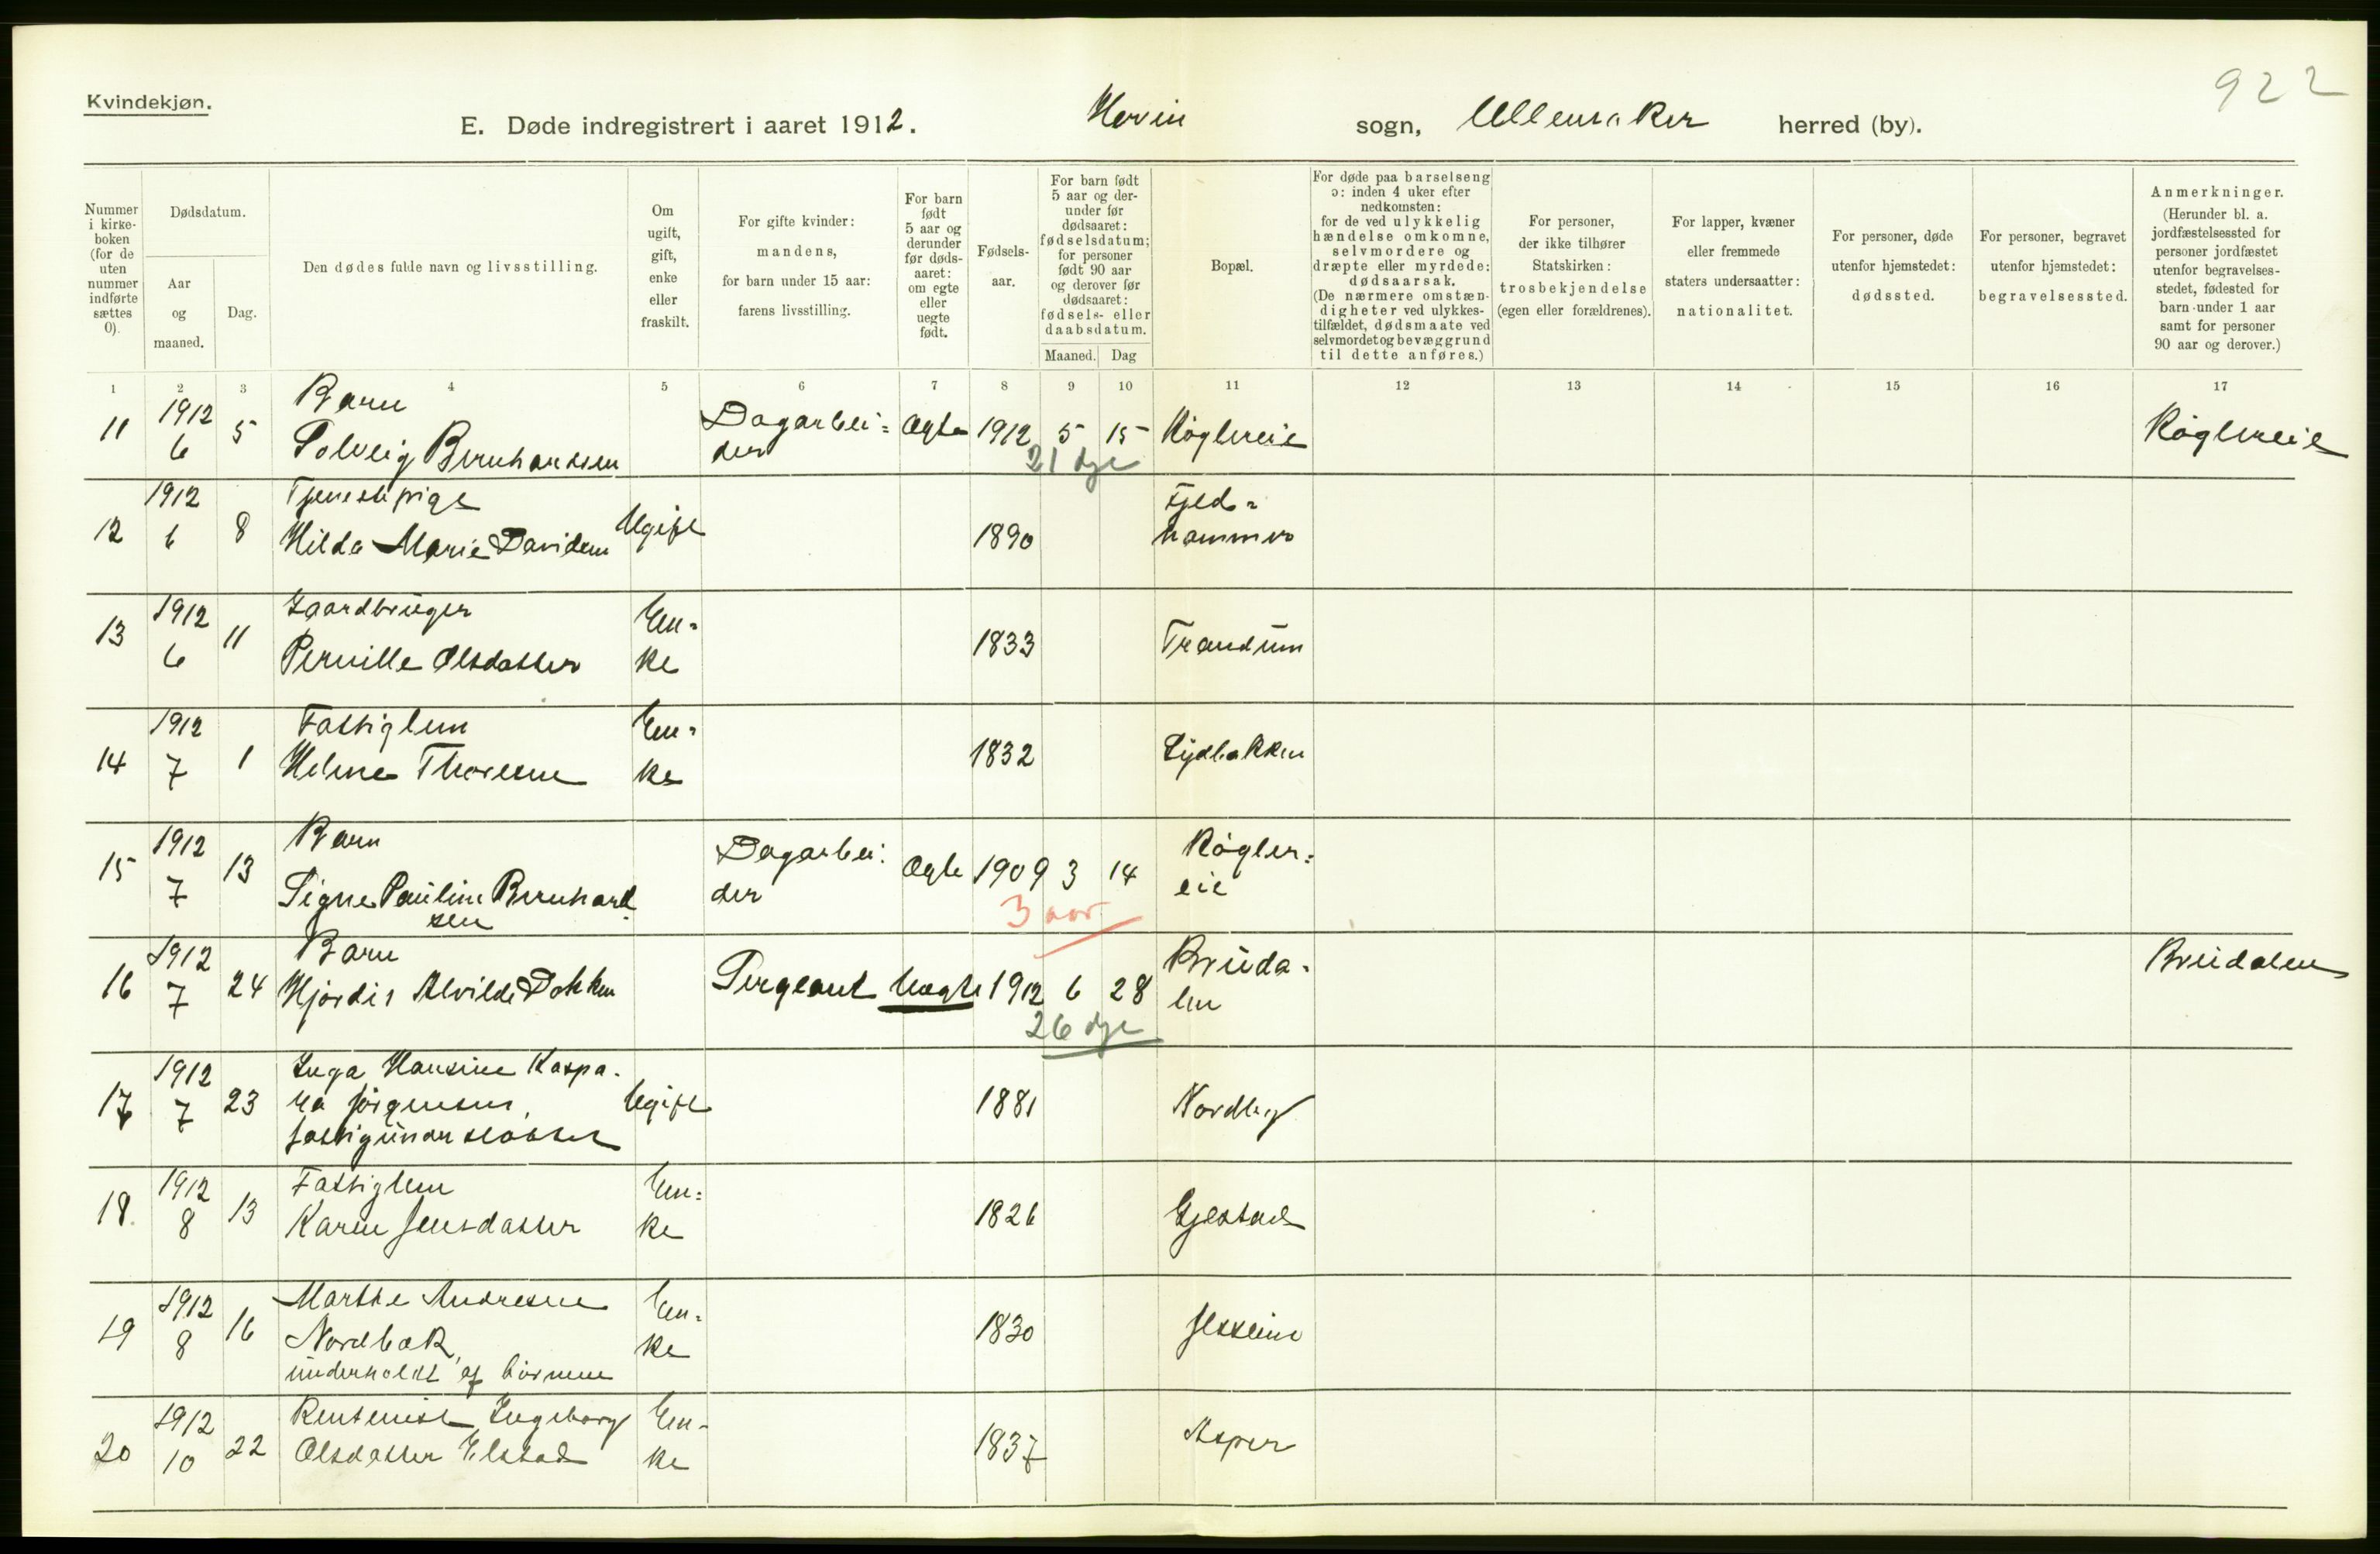 922
Kvindekjøn.
E. Døde indregistrert i aaret 1912. Hovin sogn, Ullensaker herred (by).
Nummer i kirkeboken (for de uten nummer indførte sættes 0).
Dødsdatum.
Aar og maaned.
Dag.
Den dødes fulde navn og livsstilling.
Om ugift, gift, enke eller fraskilt.
For gifte kvinder: mandens, for barn under 15 aar: farens livsstilling.
For barn født 5 aar og derunder før dødsaaret: om egte eller uegte født.
Fødselsaar.
For barn født 5 aar og derunder før dødsaaret: fødselsdatum; for personer født 90 aar og derover før dødsaaret: fødsels- eller daabsdatum.
Maaned. Dag
Bopæl.
For døde paa barselseng ɔ: inden 4 uker efter nedkomsten: for de ved ulykkelig hændelse omkomne, selvmordere og dræpte eller myrdede: dødsaarsak. (De nærmere omstændigheter ved ulykkestilfældet, dødsmaate ved selvmordet og bevæggrund til dette anføres.)
For personer, der ikke tilhører Statskirken: trosbekjendelse (egen eller forældrenes).
For lapper, kvæner eller fremmede staters undersaatter: nationalitet.
For personer, døde utenfor hjemstedet: dødssted.
For personer, begravet utenfor hjemstedet: begravelsessted.
Anmerkninger. (Herunder bl. a. jordfæstelsessted for personer jordfæstet utenfor begravelsesstedet, fødested for barn under 1 aar samt for personer 90 aar og derover.)
1 2 3 4 5 6 7 8 9 10 11 12 13 14 15 16 17
11 1912 6 5 Barn Solveig Bernhardsen Dagarbeider Ægte 1912 5 15 Røglereie Røglereie
21 dge
12 1912 6 8 Tjenestepige Hilda Marie Davidsen Ugift 1890 Fjeldhammer
13 1912 6 11 Gaardbruger Pernille Olsdatter Enke 1833 Trandum
14 1912 7 1 Fattiglem Helene Thoresen Enke 1832 Lydbakken
15 1912 7 13 Barn Signe Pauline Bernhardsen Dagarbeider Ægte 1909 3 14 Røglereie
3 aar
16 1912 7 24 Barn Hjørdis Alvilde Dokken Sergeant Uægte 1912 6 28 Brudalen Brudalen
26 dge
17 1912 7 23 Inga Hansine Kaspara Jørgensen, fattigunderstøttet Ugift 1881 Nordby
18. 1912 8 13 Fattiglem Karen Jensdatter Enke 1826 Gjestad
19 1912 8 16 Marthe Andresen Nordbæk, underholdt af børnene Enke 1830 Jessheim
20 1912 10 22 Rentenist Ingeborg Olsdatter Elstad Enke 1837 Asper